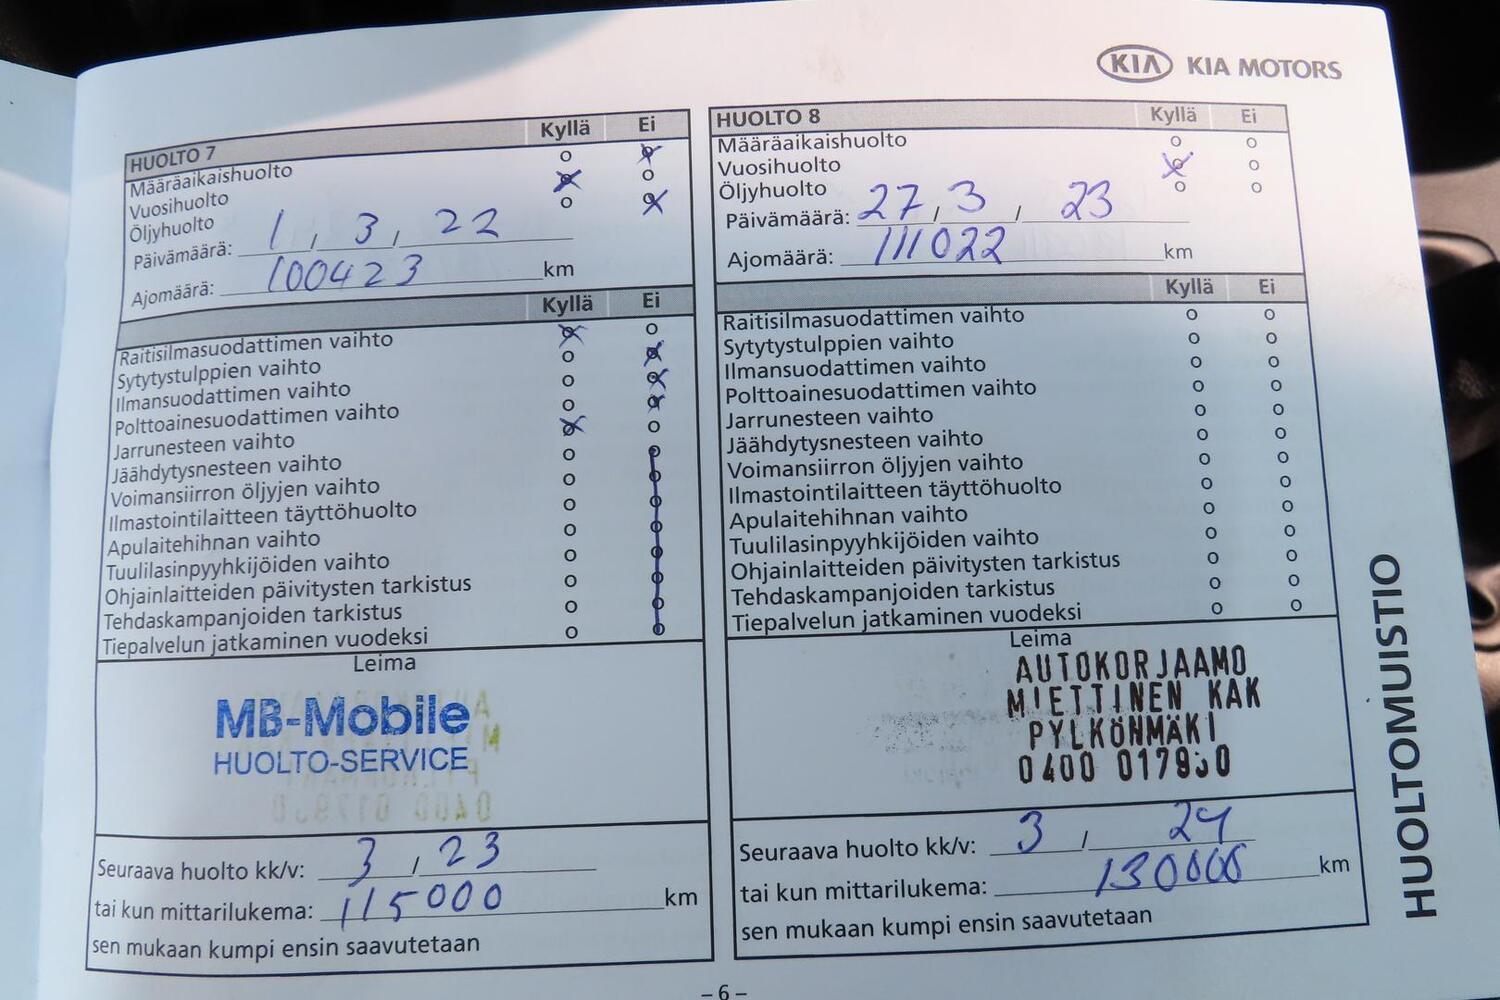 KIA KIA MOTORS
HUOLTO 7 Kyllä Ei
Määräaikaishuolto
Vuosihuolto
Öljyhuolto
Päivämäärä: 1 , 3 , 22
Ajomäärä: 100423 km
Kyllä Ei
Raitisilmasuodattimen vaihto
Sytytystulppien vaihto
Ilmansuodattimen vaihto
Polttoainesuodattimen vaihto
Jarrunesteen vaihto
Jäähdytysnesteen vaihto
Voimansiirron öljyjen vaihto
Ilmastointilaitteen täyttöhuolto
Apulaitehihnan vaihto
Tuulilasinpyyhkijöiden vaihto
Ohjainlaitteiden päivitysten tarkistus
Tehdaskampanjoiden tarkistus
Tiepalvelun jatkaminen vuodeksi
Leima
MB-Mobile
HUOLTO-SERVICE
Seuraava huolto kk/v: 3 / 23
tai kun mittarilukema: 115000 km
sen mukaan kumpi ensin saavutetaan
HUOLTO 8 Kyllä Ei
Määräaikaishuolto
Vuosihuolto
Öljyhuolto
Päivämäärä: 27 / 3 / 23
Ajomäärä: 111022 km
Kyllä Ei
Raitisilmasuodattimen vaihto
Sytytystulppien vaihto
Ilmansuodattimen vaihto
Polttoainesuodattimen vaihto
Jarrunesteen vaihto
Jäähdytysnesteen vaihto
Voimansiirron öljyjen vaihto
Ilmastointilaitteen täyttöhuolto
Apulaitehihnan vaihto
Tuulilasinpyyhkijöiden vaihto
Ohjainlaitteiden päivitysten tarkistus
Tehdaskampanjoiden tarkistus
Tiepalvelun jatkaminen vuodeksi
Leima
AUTOKORJAAMO
MIETTINEN KAK
PYLKÖNMÄKI
0400
Seuraava huolto kk/v: 3 / 24
tai kun mittarilukema: 130000 km
sen mukaan kumpi ensin saavutetaan
HUOLTOMUISTIO
– 6 –